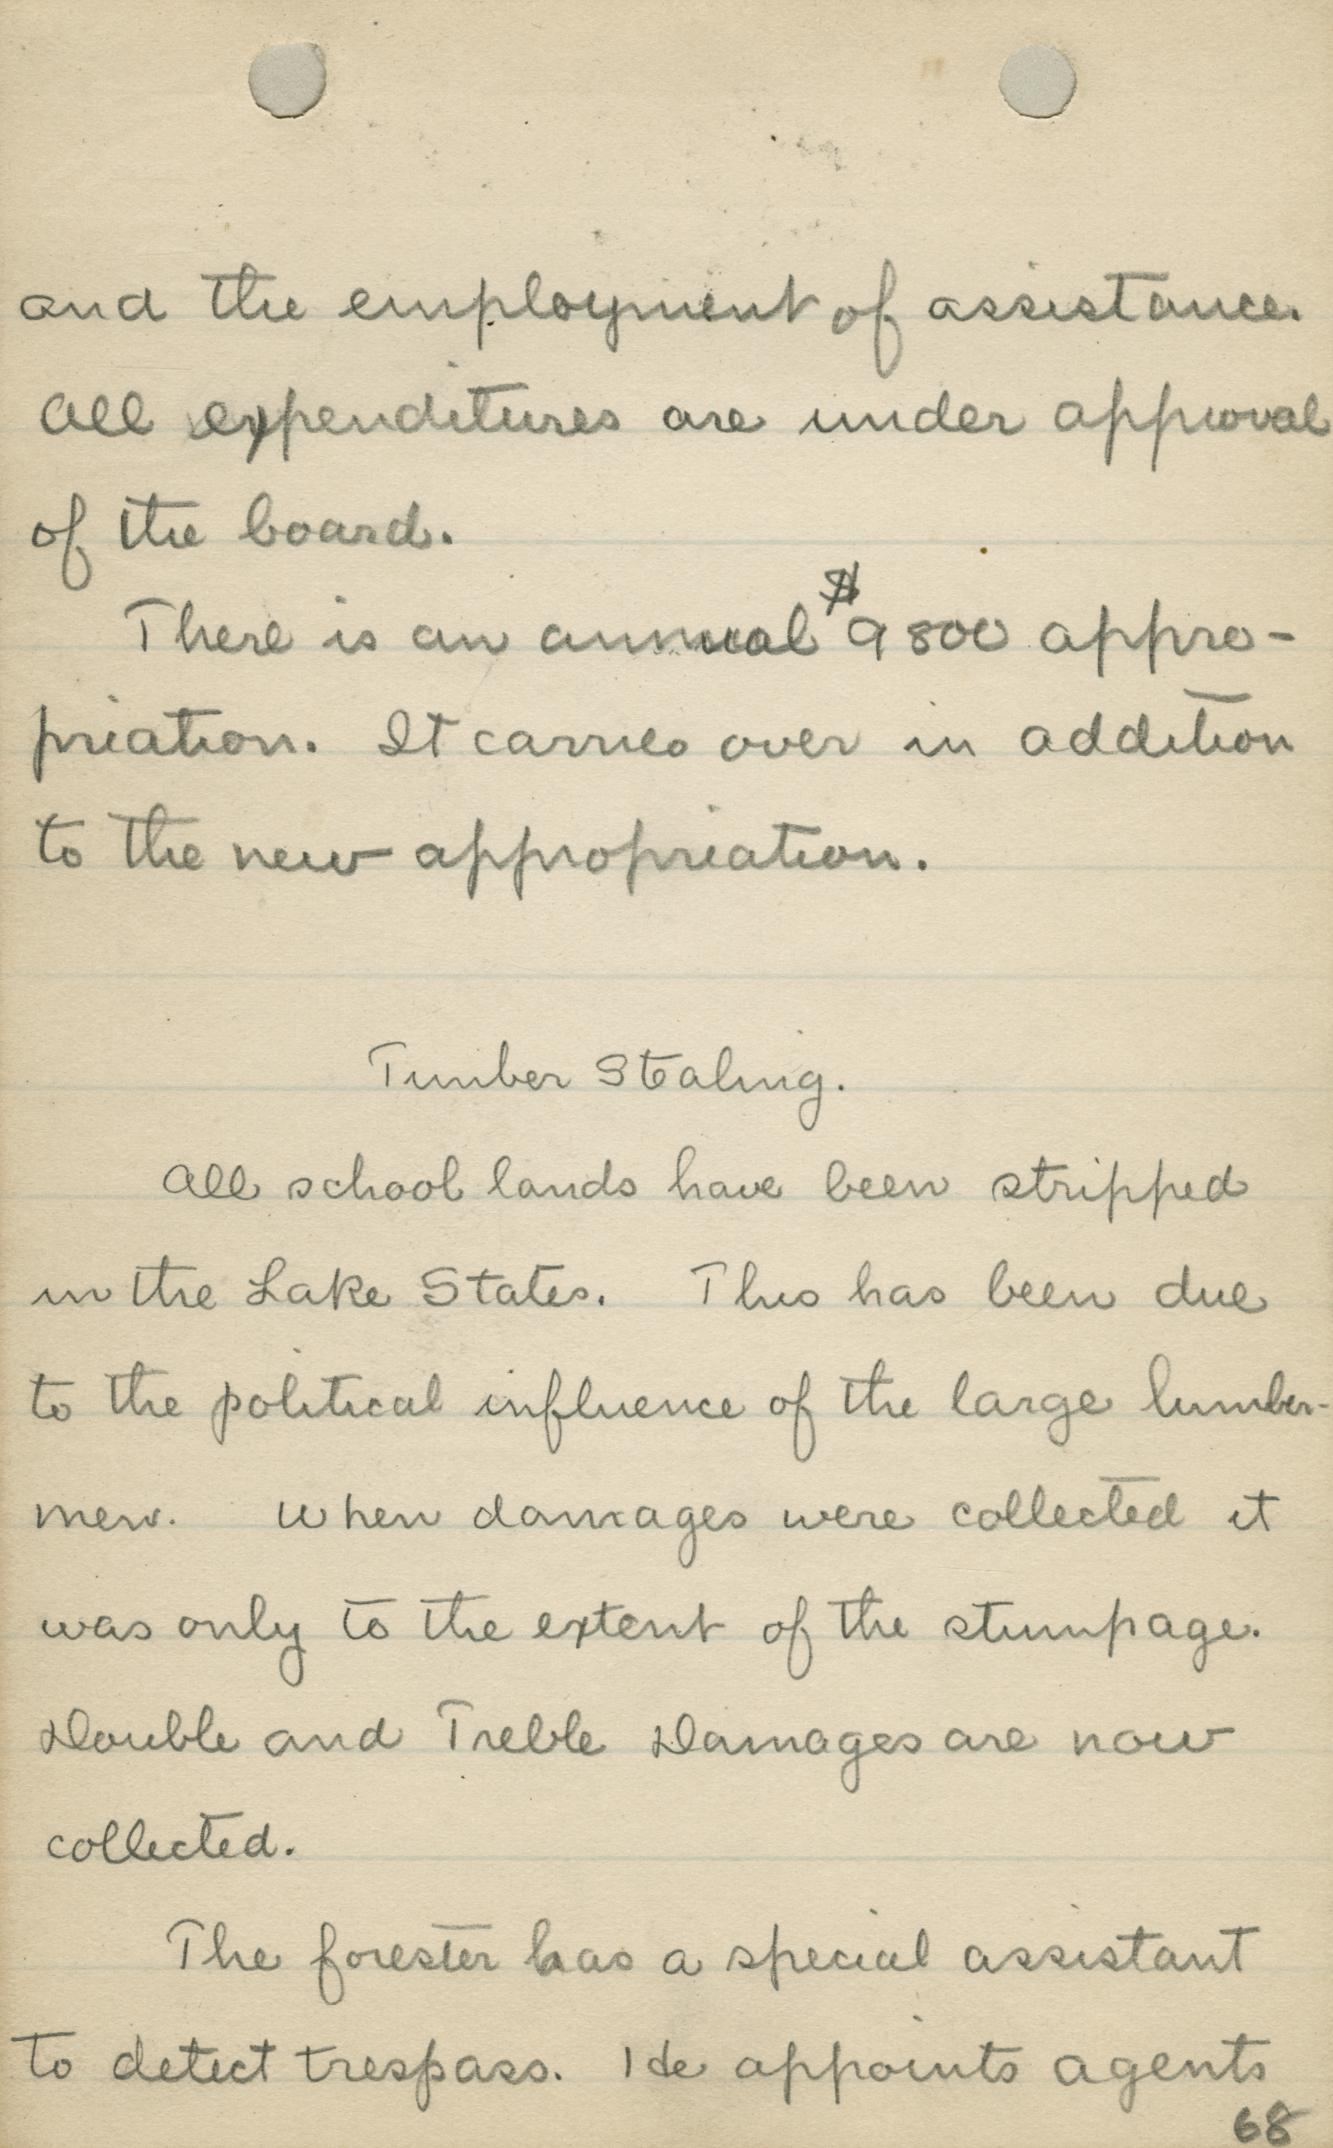 and the employment of assistance.
All expenditures are under approval
of the board.
There is an annual $9800 appro-
priation. It carries over in addition
to the new appropriation.
Timber Stealing.
All school lands have been stripped
in the Lake States. This has been due
to the political influence of the large lumber-
men. When damages were collected it
was only to the extent of the stumpage.
Double and Treble Damages are now
collected.
The forester has a special assistant
to detect trespass. He appoints agents
68